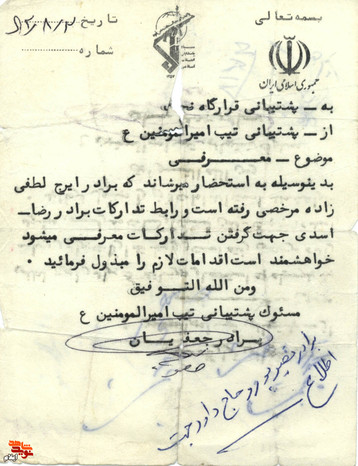 بسمه تعالی
جمهوری اسلامی ایران
تاریخ ۶۲/۸/۲
شماره
به ـ پشتیبانی قرارگاه
از ـ پشتیبانی تیپ امیرالمومنین ع
موضوع ـ معرفی
بدینوسیله به استحضار میرساند که برادر ایرج لطفی
زاده مرخصی رفته است و رابط تدارکات برادر رضا ـ
اسدی جهت گرفتن تدارکات معرفی میشود
خواهشمند است اقدامات لازم را مبذول فرمائید ۰
ومن الله التوفیق
مسئوك پشتیبانی تیپ امیرالمومنین ع
برادر جعفریان
برادر نصیرپور و حاج داود جهت
اطلاع